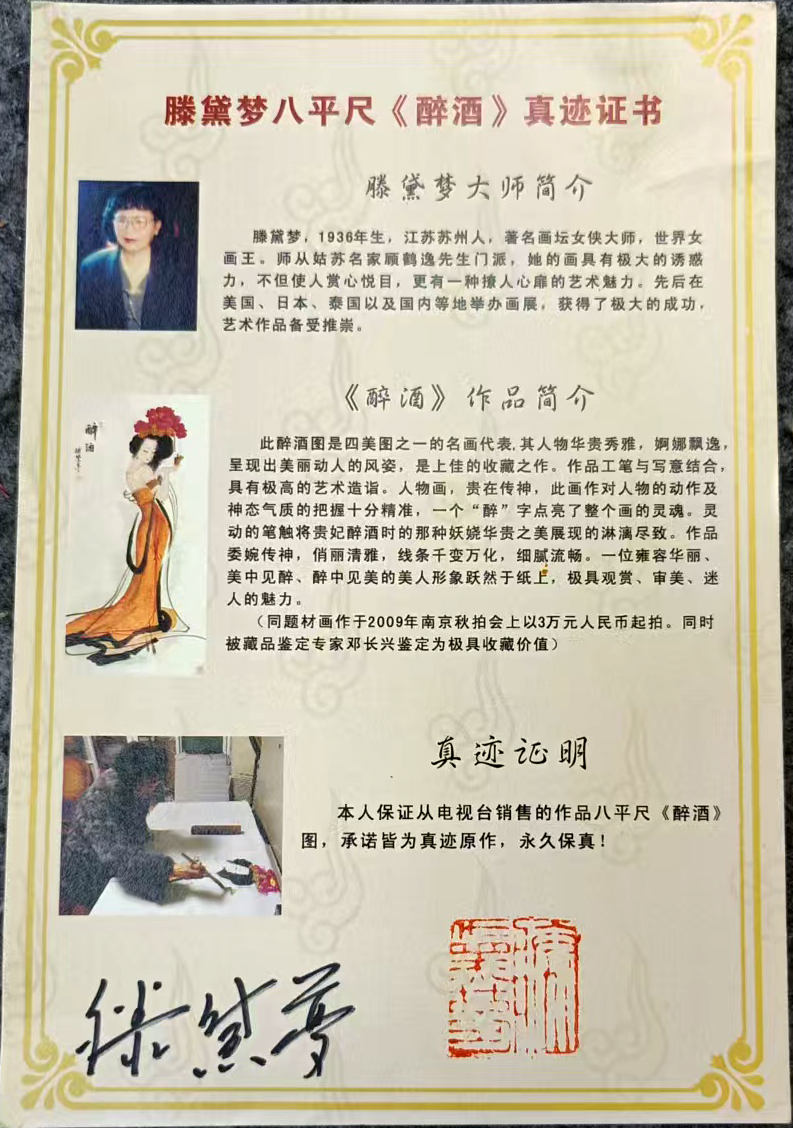 滕黛梦八平尺《醉酒》真迹证书
滕黛梦大师简介
滕黛梦，1936年生，江苏苏州人，著名画坛女侠大师，世界女
画王。师从姑苏名家顾鹤逸先生门派，她的画具有极大的诱惑
力，不但使人赏心悦目，更有一种撩人心扉的艺术魅力。先后在
美国、日本、泰国以及国内等地举办画展，获得了极大的成功，
艺术作品备受推崇。
《醉酒》作品简介
醉酒
此醉酒图是四美图之一的名画代表,其人物华贵秀雅，婀娜飘逸，
呈现出美丽动人的风姿，是上佳的收藏之作。作品工笔与写意结合，
具有极高的艺术造诣。人物画，贵在传神，此画作对人物的动作及
神态气质的把握十分精准，一个“醉”字点亮了整个画的灵魂。灵
动的笔触将贵妃醉酒时的那种妖娆华贵之美展现的淋漓尽致。作品
委婉传神，俏丽清雅，线条千变万化，细腻流畅。一位雍容华丽、
美中见醉、醉中见美的美人形象跃然于纸上，极具观赏、审美、迷
人的魅力。
（同题材画作于2009年南京秋拍会上以3万元人民币起拍。同时
被藏品鉴定专家邓长兴鉴定为极具收藏价值）
真迹证明
本人保证从电视台销售的作品八平尺《醉酒》
图，承诺皆为真迹原作，永久保真！
滕黛梦